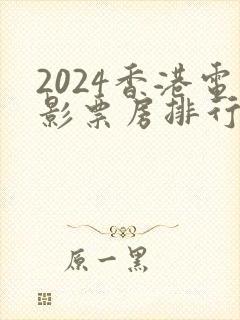 2024香港電
影票房排行
原一黑